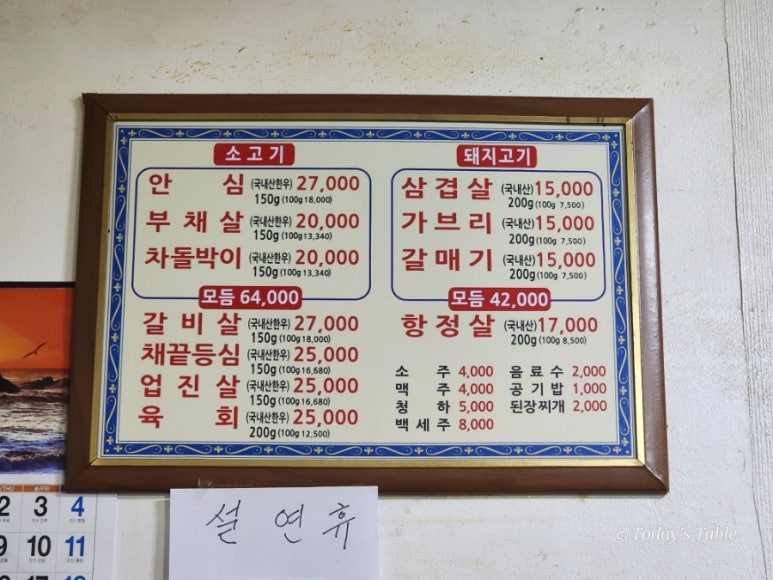 소고기
안 심 (국내산한우) 27,000
150g (100g 18,000)
부 채 살 (국내산한우) 20,000
150g (100g 13,340)
차돌박이 (국내산한우) 20,000
150g (100g 13,340)
모듬 64,000
갈 비 살 (국내산한우) 27,000
150g (100g 18,000)
채끝등심 (국내산한우) 25,000
150g (100g 16,680)
업 진 살 (국내산한우) 25,000
150g (100g 16,680)
육 회 (국내산한우) 25,000
200g (100g 12,500)
돼지고기
삼 겹 살 (국내산) 15,000
200g (100g 7,500)
가 브 리 (국내산) 15,000
200g (100g 7,500)
갈 매 기 (국내산) 15,000
200g (100g 7,500)
모듬 42,000
항 정 살 (국내산) 17,000
200g (100g 8,500)
소 주 4,000
맥 주 4,000
청 하 5,000
백 세 주 8,000
음 료 수 2,000
공 기 밥 1,000
된장찌개 2,000
/THU 금/FRI
2 3 4
9 10 11
17
설 연 휴
© Today's Table